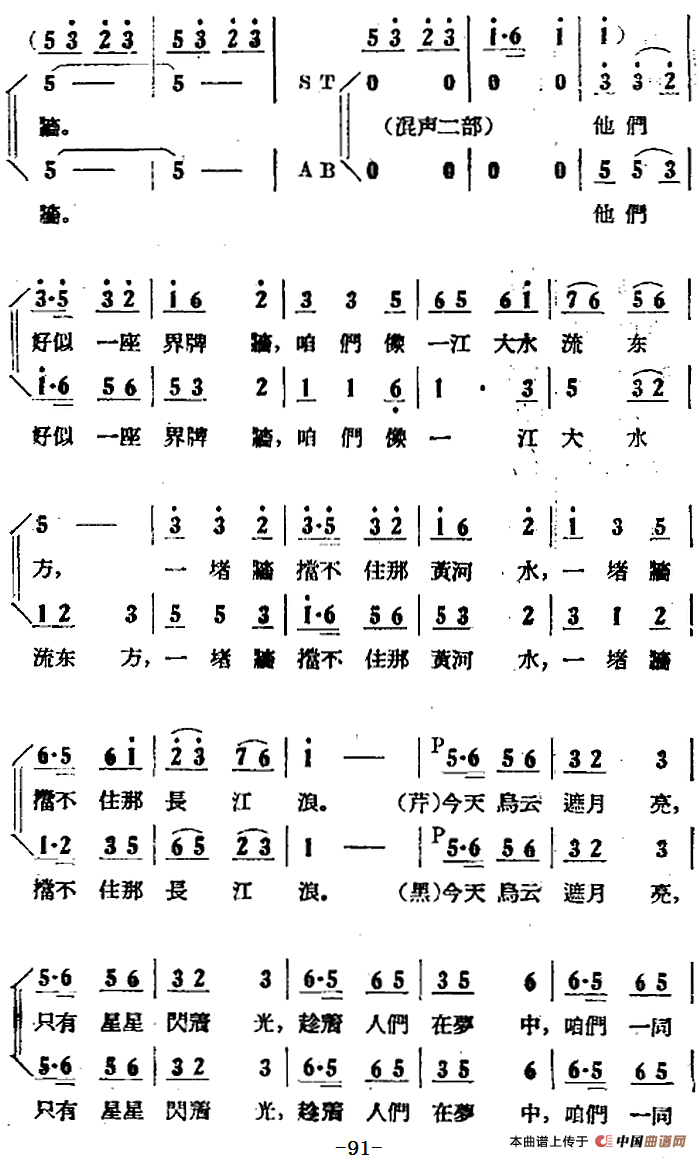 (5 3 2 3 5 3 2 3 5 3 2 3 1·6 1 1)
5 — 5 — S T 0 0 0 0 3 3 2
牆。 (混声二部) 他們
5 — 5 — A B 0 0 0 0 5 5 3
牆。 他們
3·5 3 2 1 6 2 3 3 5 6 5 6 1 7 6 5 6
好似 一座 界牌 牆，咱 們 像 一江 大水 流 东
1·6 5 6 5 3 2 1 1 6 1 · 3 5 3 2
好似 一座 界牌 牆，咱 們 像 一 江 大 水
5 — 3 3 2 3·5 3 2 1 6 2 1 3 5
方， 一 堵 牆 擋不 住那 黃河 水，一 堵 牆
1 2 3 5 5 3 1·6 5 6 5 3 2 3 1 2
流东 方，一 堵 牆 擋不 住那 黃河 水，一 堵 牆
6·5 6 1 2 3 7 6 1 — P 5·6 5 6 3 2 3
擋不 住那 長 江 浪。 (芹)今天 烏云 遮月 亮，
1·2 3 5 6 5 2 3 1 — P 5·6 5 6 3 2 3
擋不 住那 長 江 浪。 (黑)今天 烏云 遮月 亮，
5·6 5 6 3 2 3 6·5 6 5 3 5 6 6·5 6 5
只有 星星 閃着 光，趁着 人們 在夢 中，咱們 一同
5·6 5 6 3 2 3 6·5 6 5 3 5 6 6·5 6 5
只有 星星 閃着 光，趁着 人們 在夢 中，咱們 一同
-91-
本曲谱上传于 中国曲谱网